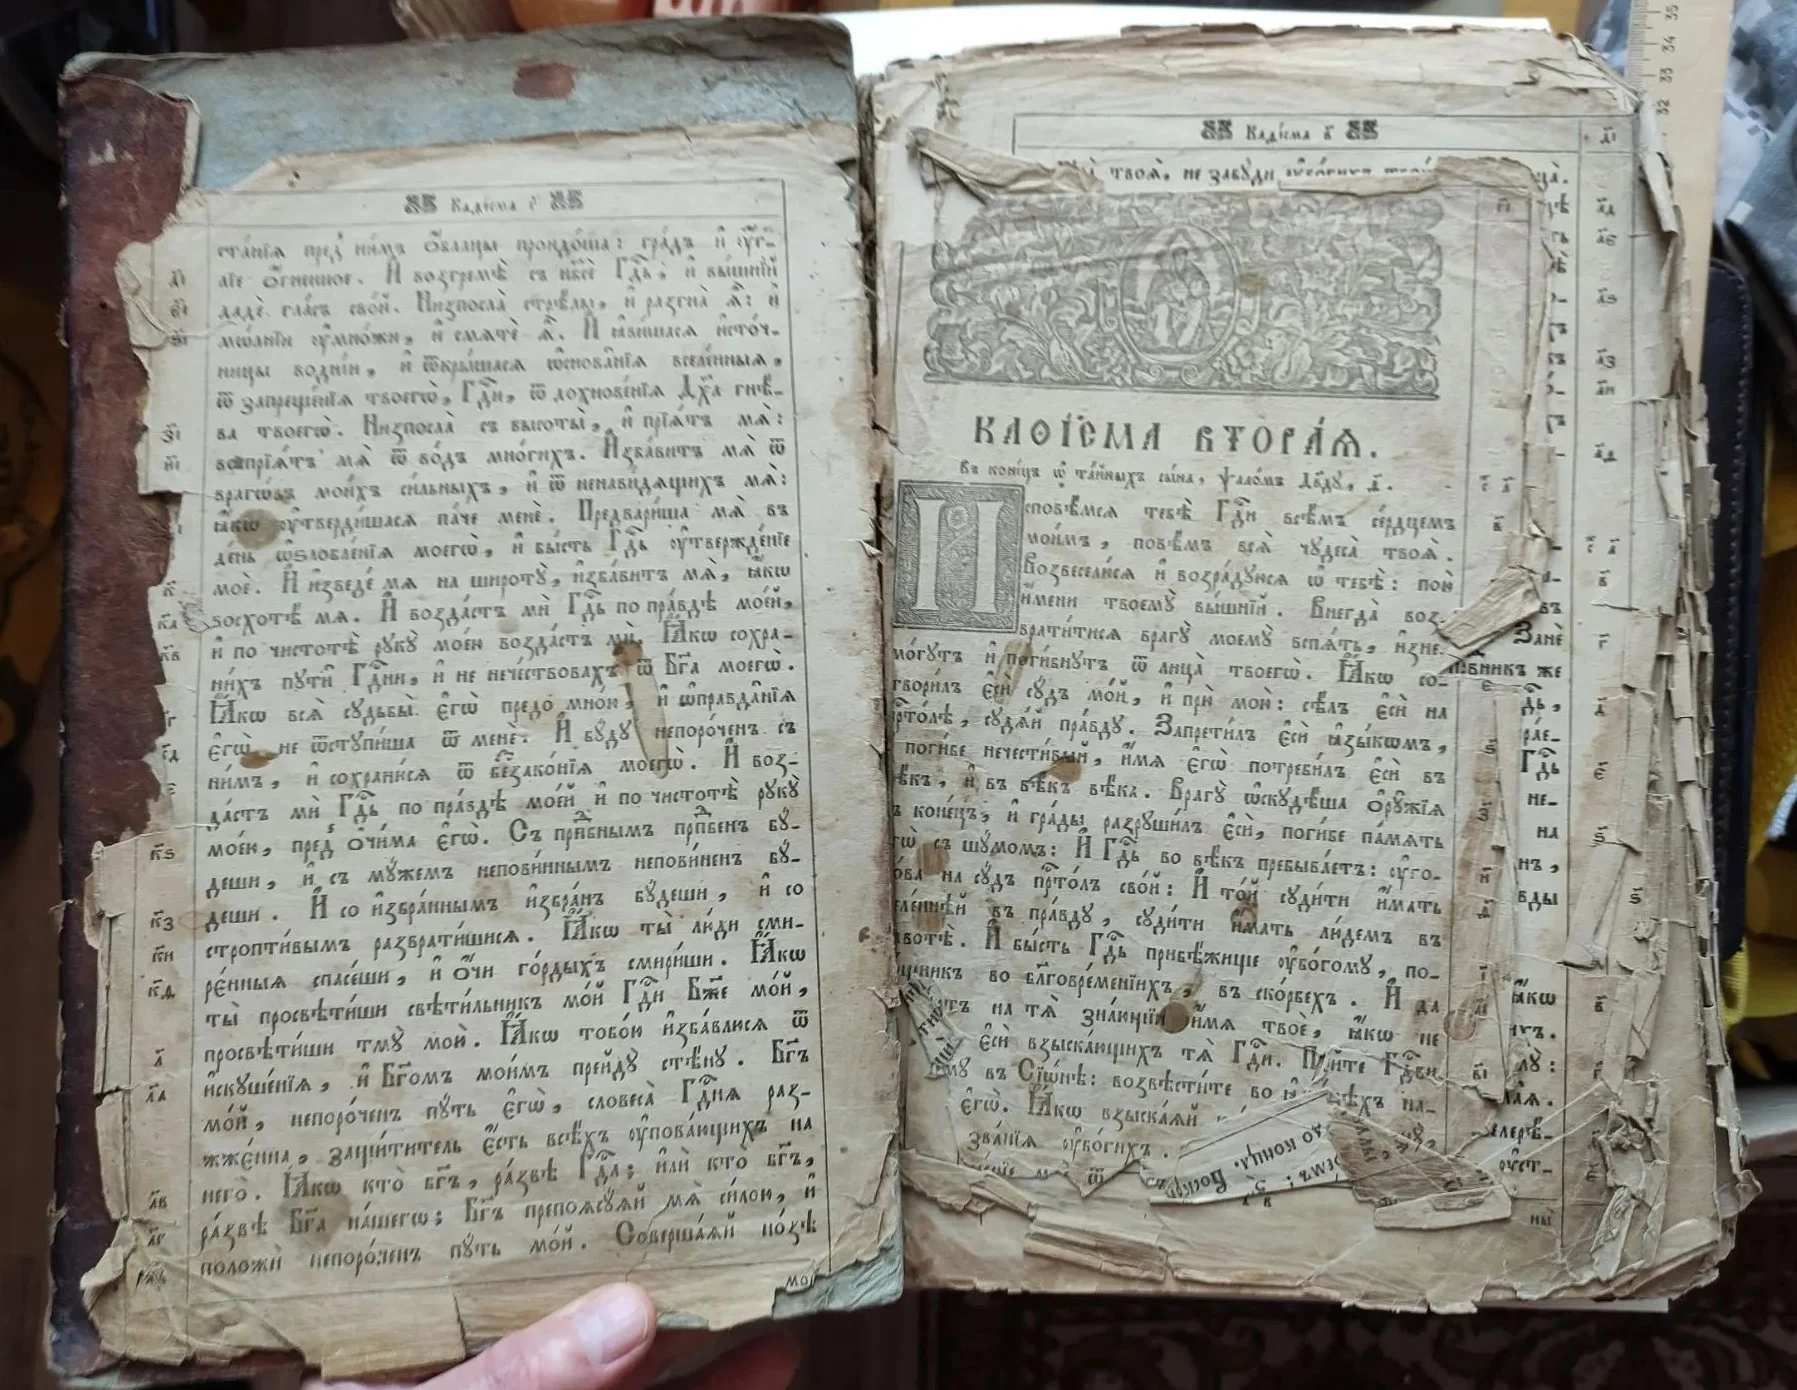 Каѳі́сма г҃
ста́нїя пред̾ ни́мъ ѻ҆́блацы проидо́ша: гра́дъ и҆ ѹ҆́гл-
лїе ѻ҆́гненное. И҆ возгремѣ̀ съ нб҃сѐ Гдⷭ҇ь, и҆ вы́шнїй
дадѐ гла́съ сво́й. Низпосла̀ стрѣ́лы, и҆ разгна̀ ѧ҆̀: и҆
мѡ́лнїи ѹ҆мно́жи, и҆ смѧтѐ ѧ҆̀. И҆ ꙗ҆ви́шасѧ и҆сто́ч-
ницы во́днїи, и҆ ѿкры́шасѧ ѡ҆снова̑нїѧ вселе́нныѧ,
ѿ запреще́нїѧ твоегѡ̀, Гдⷭ҇и, ѿ дохнове́нїѧ Дх҃а гнѣ́-
ва твоегѡ̀. Низпосла̀ съ высоты̀, и҆ прїѧ́тъ мѧ̀:
воспрїѧ́тъ мѧ̀ ѿ во́дъ мно́гихъ. И҆зба́витъ мѧ̀ ѿ
врагѡ́въ мои́хъ си́льныхъ, и҆ ѿ ненави́дѧщихъ мѧ̀:
ꙗ҆́кѡ ѹ҆тверди́шасѧ па́че менѐ. Предвари́ша мѧ̀ въ
де́нь ѡ҆ѕлобле́нїѧ моегѡ̀, и҆ бы́сть Гдⷭ҇ь ѹ҆твержде́нїе
моѐ. И҆ и҆зведе́ мѧ на широтꙋ̀, и҆зба́витъ мѧ̀, ꙗ҆́кѡ
восхотѣ́ мѧ. И҆ возда́стъ мѝ Гдⷭ҇ь по пра́вдѣ мое́й,
и҆ по чистотѣ̀ рꙋкꙋ̀ моє́ю возда́стъ мѝ. Ꙗ҆́кѡ сохра-
ни́хъ пꙋти̑ Гдⷭ҇ни, и҆ не нече́ствовахъ ѿ Бг҃а моегѡ̀.
Ꙗ҆́кѡ всѧ̑ сꙋдьбы̑ є҆гѡ̀ предо мно́ю, и҆ ѡ҆правда̑нїѧ
є҆гѡ̀ не ѿстꙋпи́ша ѿ менѐ. И҆ бꙋ́дꙋ непоро́ченъ съ
ни́мъ, и҆ сохраню́сѧ ѿ беззако́нїѧ моегѡ̀. И҆ воз-
да́стъ мѝ Гдⷭ҇ь по пра́вдѣ мое́й и҆ по чистотѣ̀ рꙋкꙋ̀
моє́ю, пред̾ ѻ҆чи́ма є҆гѡ̀. Съ прпⷣбнымъ прпⷣбенъ бꙋ́-
деши, и҆ съ мꙋ́жемъ непови́ннымъ непови́ненъ бꙋ́-
деши. И҆ со и҆збра́ннымъ и҆збра́нъ бꙋ́деши, и҆ со
стропти́вымъ разврати́шисѧ. Ꙗ҆́кѡ ты̀ лю́ди сми-
ре́нныѧ спасе́ши, и҆ ѻ҆́чи го́рдыхъ смири́ши. Ꙗ҆́кѡ
ты̀ просвѣти́ши свѣти́льникъ мо́й Гдⷭ҇и Бж҃е мо́й,
просвѣти́ши тмꙋ̀ мою̀. Ꙗ҆́кѡ тобо́ю и҆зба́влюсѧ ѿ
и҆скꙋше́нїѧ, и҆ Бг҃омъ мои́мъ прейдꙋ̀ стѣ́нꙋ. Бг҃ъ
мо́й, непоро́ченъ пꙋ́ть є҆гѡ̀, словеса̀ Гдⷭ҇нѧ раз-
жжє́нна, защи́титель є҆́сть всѣ́хъ ѹ҆пова́ющихъ на
него̀. Ꙗ҆́кѡ кто̀ бг҃ъ, ра́звѣ Гдⷭ҇а; и҆лѝ кто̀ бг҃ъ,
ра́звѣ Бг҃а на́шегѡ; Бг҃ъ препоѧсꙋ́ѧй мѧ̀ си́лою, и҆
положѝ непоро́ченъ пꙋ́ть мо́й. Соверша́ѧй но́зѣ
мои̑
Каѳі́сма в҃
твоѧ̑, не забꙋ́ди ѹ҆бо́гихъ
КАѲІ́СМА ВТОРА́Ѧ.
Въ коне́цъ ѡ҆ та́йныхъ сы́на, ѱало́мъ Дв҃дꙋ, ѳ҃.
И҆сповѣ́мсѧ тебѣ̀ Гдⷭ҇и всѣ́мъ се́рдцемъ
мои́мъ, повѣ́мъ всѧ̑ чꙋдеса̀ твоѧ̑.
Возвеселю́сѧ и҆ возра́дꙋюсѧ ѡ҆ тебѣ̀: пою̀
и҆́мени твоемꙋ̀ вы́шнїй. Внегда̀ воз-
врати́тисѧ врагꙋ̀ моемꙋ̀ вспѧ́ть, и҆знe-
мо́гꙋтъ и҆ поги́бнꙋтъ ѿ лица̀ твоегѡ̀. Ꙗ҆́кѡ со-
твори́лъ є҆сѝ сꙋ́дъ мо́й, и҆ прю̀ мою̀: сѣ́лъ є҆сѝ на
прⷭ҇то́лѣ, сꙋдѧ́й пра́вдꙋ. Запрети́лъ є҆сѝ ꙗ҆зы́кѡмъ,
поги́бе нечести́вый, и҆́мѧ є҆гѡ̀ потреби́лъ є҆сѝ въ
вѣ́къ, и҆ въ вѣ́къ вѣ́ка. Врагꙋ̀ ѡ҆скꙋдѣ́ша ѻ҆рꙋ̑жїѧ
въ коне́цъ, и҆ гра́ды разрꙋши́лъ є҆сѝ, поги́бе па́мѧть
є҆гѡ̀ съ шꙋ́момъ: И҆ Гдⷭ҇ь во вѣ́къ пребыва́етъ: ѹ҆го-
то́ва на сꙋ́дъ прⷭ҇то́лъ сво́й: И҆ то́й сꙋди́ти и҆́мать
вселе́ннѣй въ пра́вдꙋ, сꙋди́ти и҆́мать лю́демъ въ
правотѣ̀. И҆ бы́сть Гдⷭ҇ь прибѣ́жище ѹ҆бо́гомꙋ, по-
мо́щникъ во бл҃говре́менїихъ, въ ско́рбехъ. И҆ да
на тѧ̀ зна́ющїи и҆́мѧ твоѐ, ꙗ҆́кѡ не
є҆сѝ взыска́ющихъ тѧ̀ Гдⷭ҇и. По́йте Гдⷭ҇ви
въ Сїѡ́нѣ: возвѣсти́те во
є҆гѡ̀. Ꙗ҆́кѡ взыска́ѧй
зва́нїѧ ѹ҆бо́гихъ.
до конца̀.